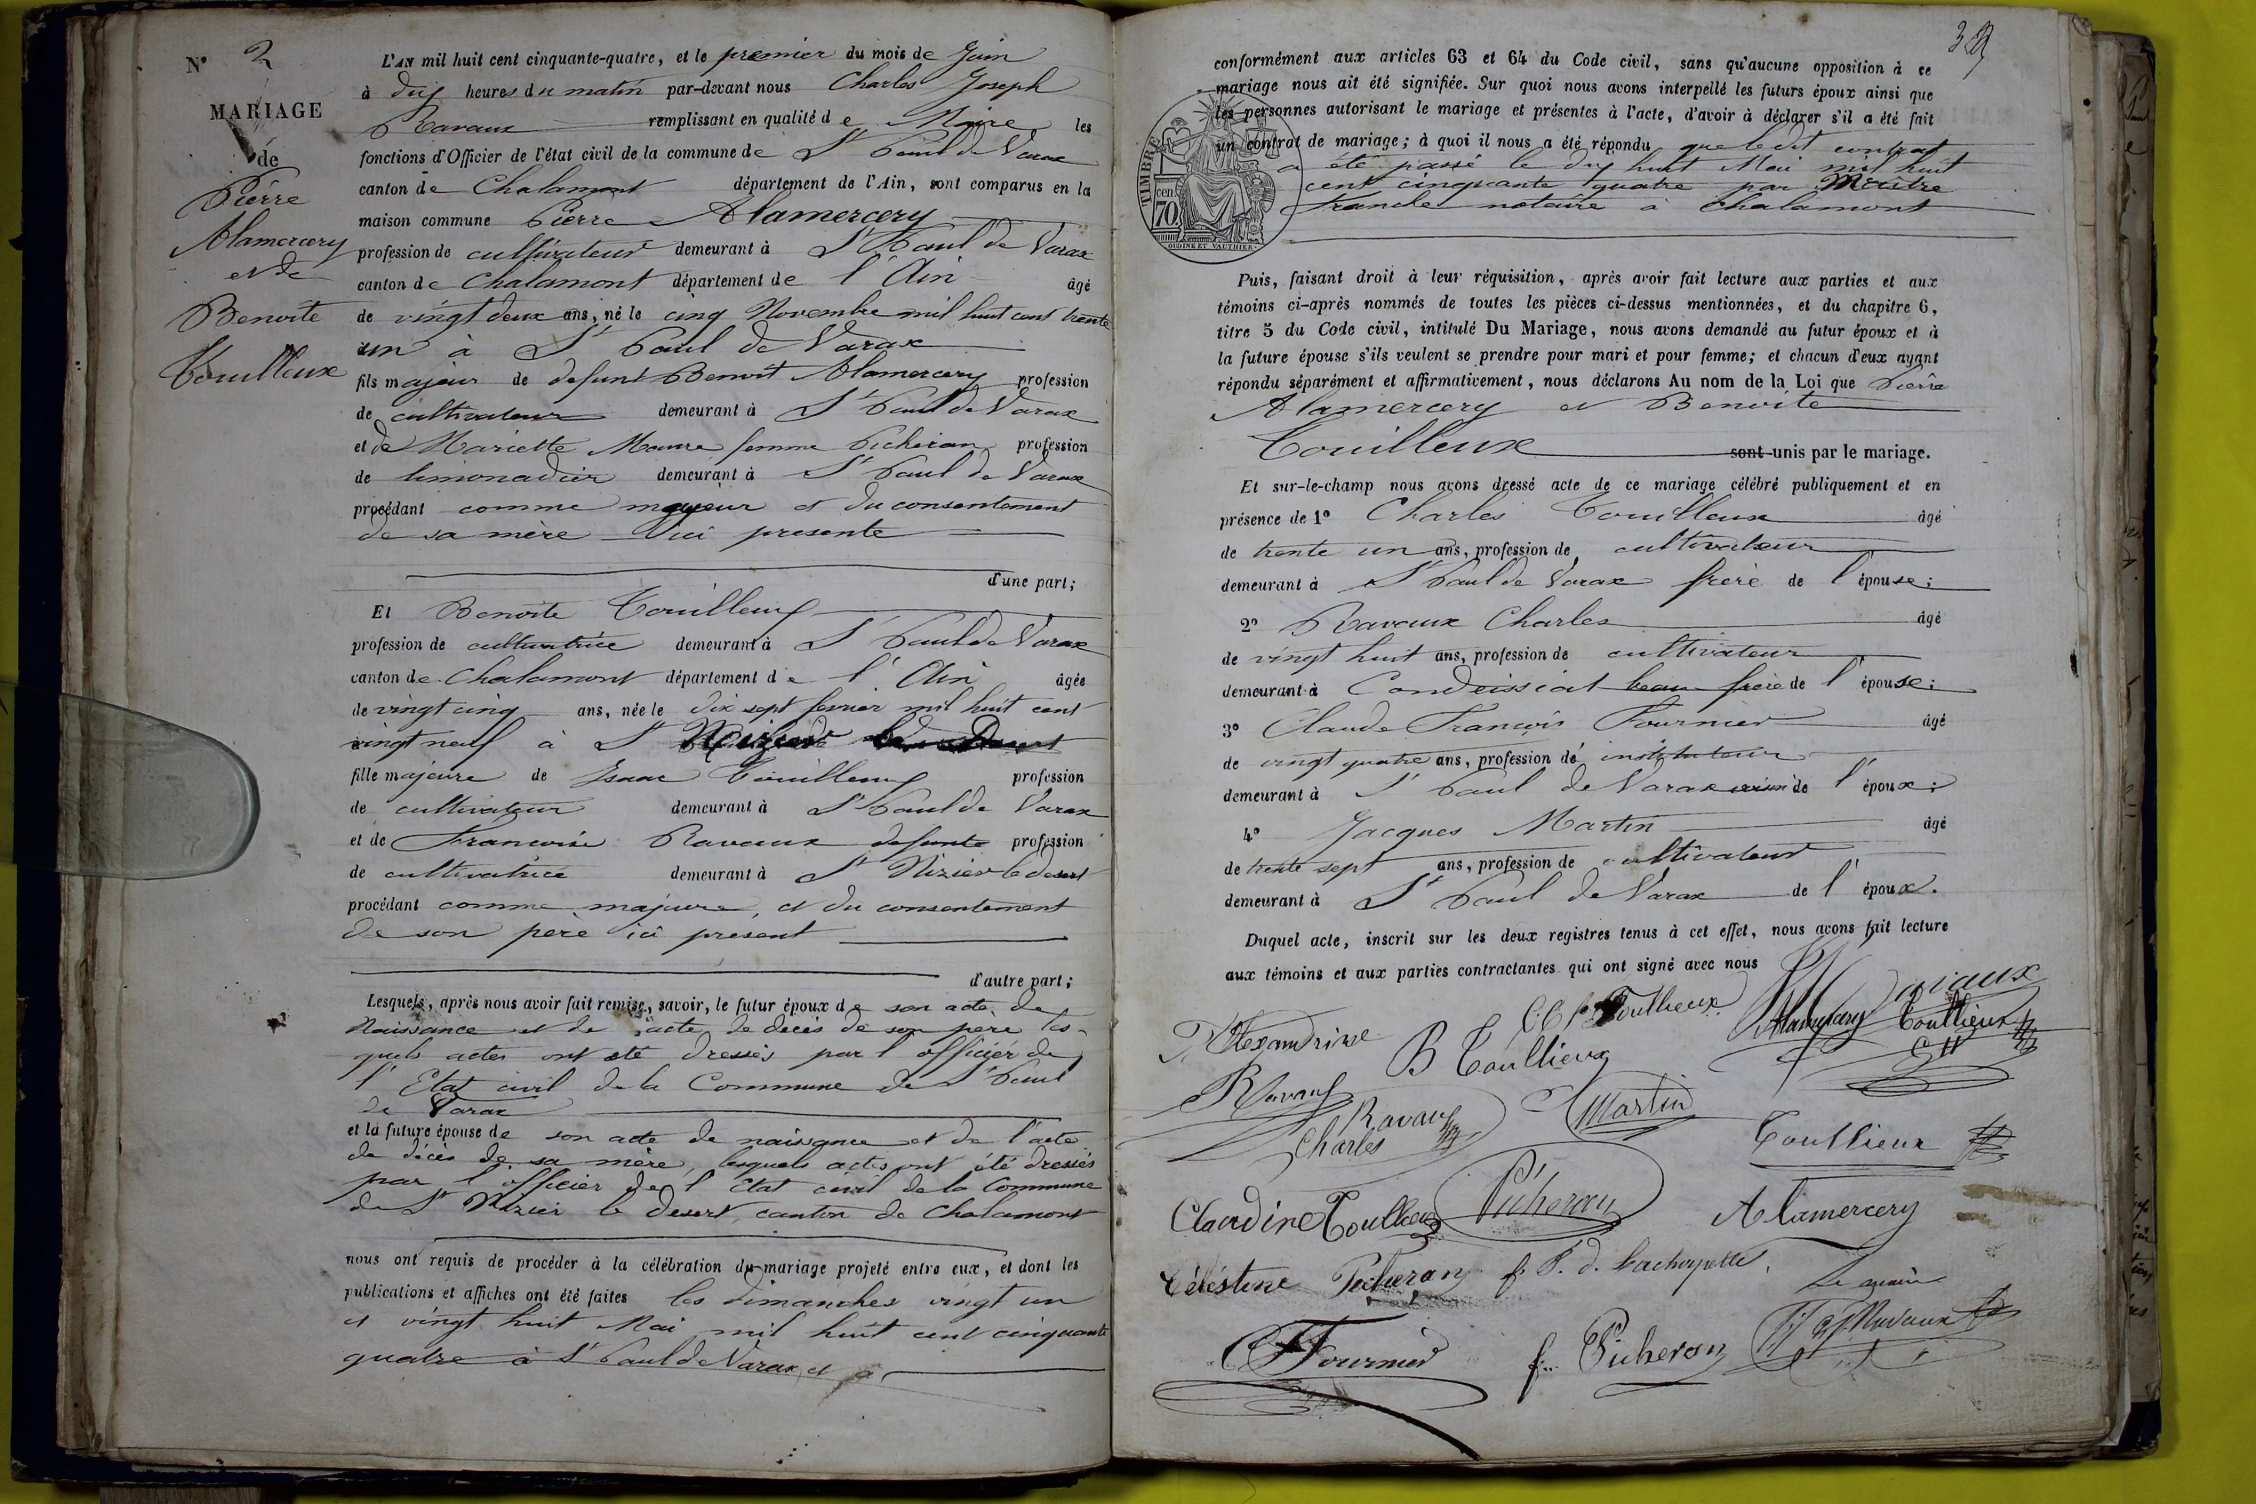 N° 2
MARIAGE
de
Pierre
Alamercery
et de
Benoite
Touilleux
L'AN mil huit cent cinquante-quatre, et le premier du mois de Juin
à dix heures du matin par-devant nous Charles Joseph
Ravaux remplissant en qualité de Maire les
fonctions d'Officier de l'état civil de la commune de St Paul de Varax
canton de Chalamont département de l'Ain, sont comparus en la
maison commune Pierre Alamercery
profession de cultivateur demeurant à St Paul de Varax
canton de Chalamont département de l'Ain âgé
de vingt deux ans, né le cinq Novembre mil huit cent trente
un à St Paul de Varax
fils majeur de defunt Benoit Alamercery profession
de cultivateur demeurant à St Paul de Varax
et de Mariette femme Picheran profession
de limonadier demeurant à St Paul de Varax
procédant comme majeur et du consentement
de sa mère ici presente
d'une part;
Et Benoite Touilleux
profession de cultivatrice demeurant à St Paul de Varax
canton de Chalamont département de l'Ain âgée
de vingt cinq ans, née le dix sept fevrier mil huit cent
vingt neuf à St Nizier le Desert
fille majeure de Isaac Touilleux profession
de cultivateur demeurant à St Paul de Varax
et de Francoise Ravaux defunte profession
de cultivatrice demeurant à St Nizier le desert
procédant comme majeure, et du consentement
de son père ici present
d'autre part;
Lesquels, après nous avoir fait remise, savoir, le futur époux de son acte de
Naissance et de l'acte de decès de son père les-
quels actes ont été dressés par l'officier de
l'Etat civil de la Commune de St Paul
de Varax
et la future épouse de son acte de naissance et de l'acte
de décès de sa mère, lesquels actes ont été dressés
par l'officier de l'Etat civil de la Commune
de St Nizier le desert canton de Chalamont
nous ont requis de procéder à la célébration du mariage projeté entre eux, et dont les
publications et affiches ont été faites les dimanches vingt un
et vingt huit Mai mil huit cent cinquante
quatre à St Paul de Varax et à
conformément aux articles 63 et 64 du Code civil, sans qu'aucune opposition à ce
mariage nous ait été signifiée. Sur quoi nous avons interpellé les futurs époux ainsi que
les personnes autorisant le mariage et présentes à l'acte, d'avoir à déclarer s'il a été fait
un contrat de mariage; à quoi il nous a été répondu que ledit contrat
a été passé le dix huit Mai mil huit
cent cinquante quatre par Maitre
notaire à Chalamont
TIMBRE
cen
70
OUDINE ET VAUTHIER
Puis, faisant droit à leur réquisition, après avoir fait lecture aux parties et aux
témoins ci-après nommés de toutes les pièces ci-dessus mentionnées, et du chapitre 6,
titre 5 du Code civil, intitulé Du Mariage, nous avons demandé au futur époux et à
la future épouse s'ils veulent se prendre pour mari et pour femme; et chacun d'eux ayant
répondu séparément et affirmativement, nous déclarons Au nom de la Loi que Pierre
Alamercery et Benoite
Touilleux sont unis par le mariage.
Et sur-le-champ nous avons dressé acte de ce mariage célébré publiquement et en
présence de 1° Charles Touilleux âgé
de trente un ans, profession de cultivateur
demeurant à St Paul de Varax frère de l'épouse;
2° Ravaux Charles âgé
de vingt huit ans, profession de cultivateur
demeurant à Condeissiat beau frère de l'épouse;
3° Claude Francois Fournier âgé
de vingt quatre ans, profession de instituteur
demeurant à St Paul de Varax de l'époux;
4° Jacques Martin âgé
de trente sept ans, profession de cultivateur
demeurant à St Paul de Varax de l'époux.
Duquel acte, inscrit sur les deux registres tenus à cet effet, nous avons fait lecture
aux témoins et aux parties contractantes qui ont signé avec nous
Toullieux
Alexandrine
B Toullieux
Alamercery
Toullieux
Ravaux
Ravaux
Charles
Martin
Toullieux
Claudine Toullieux
Picheran
Alamercery
Céléstine Picheran
Le maire
Fournier
f. Picheran
Ravaux